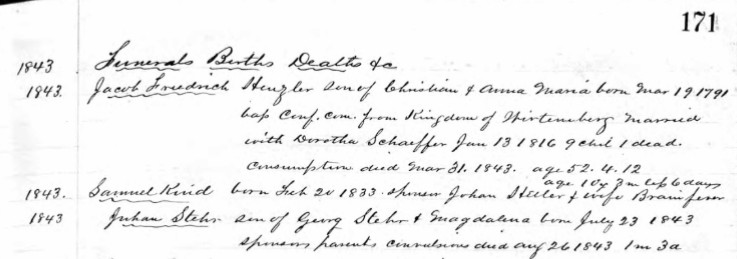 171
1843 Funerals Births Deaths &c
1843. Jacob Friedrich Hengler son of Christian & Anna Maria born Mar 19 1791
bap Conf. com. from Kingdom of Wirtemberg married
with Dorotha Schaeffer Jan 13 1816 9 chil 1 dead.
Consumption died Mar 31. 1843. age 52. 4. 12
age 10 y 3 m less 6 days
1843. Samuel Kind born Feb 20 1833. sponsor Johan Stiler & wife Brain fever
1843 Juhan Stehr son of Georg Stehr & Magdalena born July 23 1843
sponsors parents convulsions died Aug 26 1843 1 m 3 d